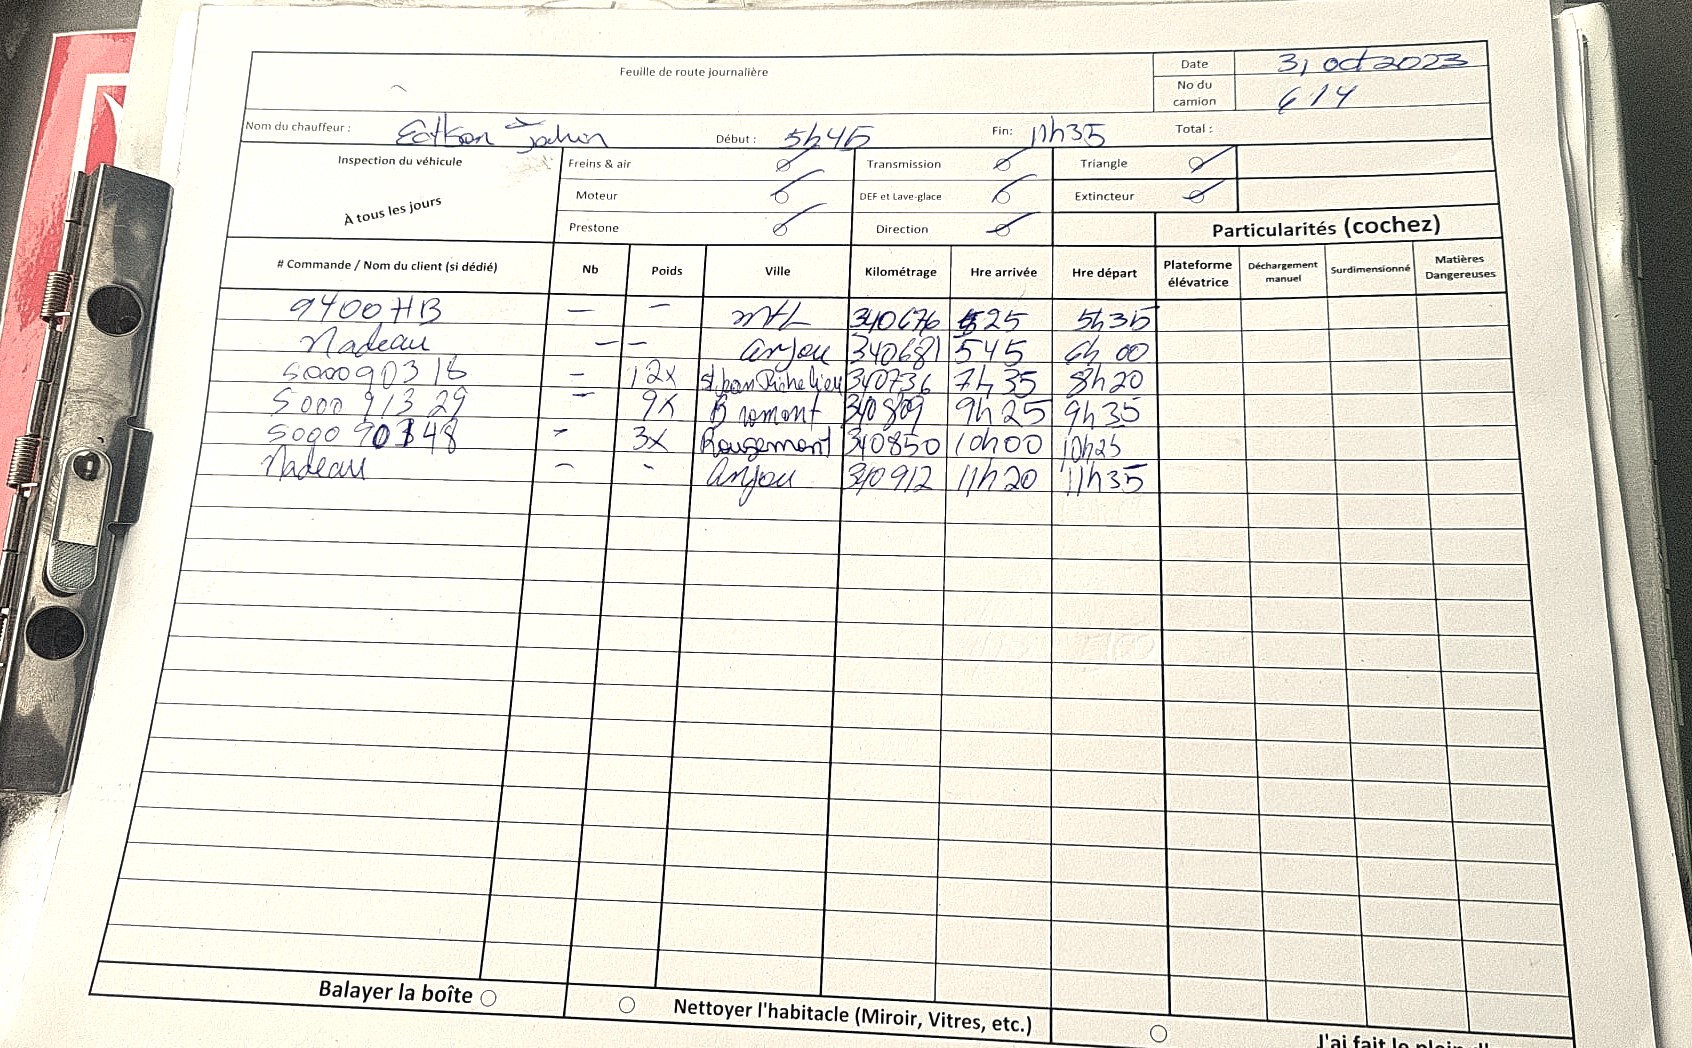 Feuille de route journalière
Date 31 oct 2023
No du camion 614
Nom du chauffeur : Début : 5h45 Fin: 11h35 Total :
Inspection du véhicule Freins & air Transmission Triangle
À tous les jours Moteur DEF et Lave-glace Extincteur
Prestone Direction Particularités (cochez)
# Commande / Nom du client (si dédié) Nb Poids Ville Kilométrage Hre arrivée Hre départ Plateforme élévatrice Déchargement manuel Surdimensionné Matières Dangereuses
9400 HB — — mtl 340676 525 5h35
Nadeau — — anjou 340681 545 6h00
500090318 — 12x st jean Richelieu 340736 7h35 8h20
500091329 — 9x Bromont 340809 9h25 9h35
500090348 - 3x Rougemont 340850 10h00 10h25
Nadeau - - anjou 340912 11h20 11h35
Balayer la boîte Nettoyer l'habitacle (Miroir, Vitres, etc.) J'ai fait le plein d'